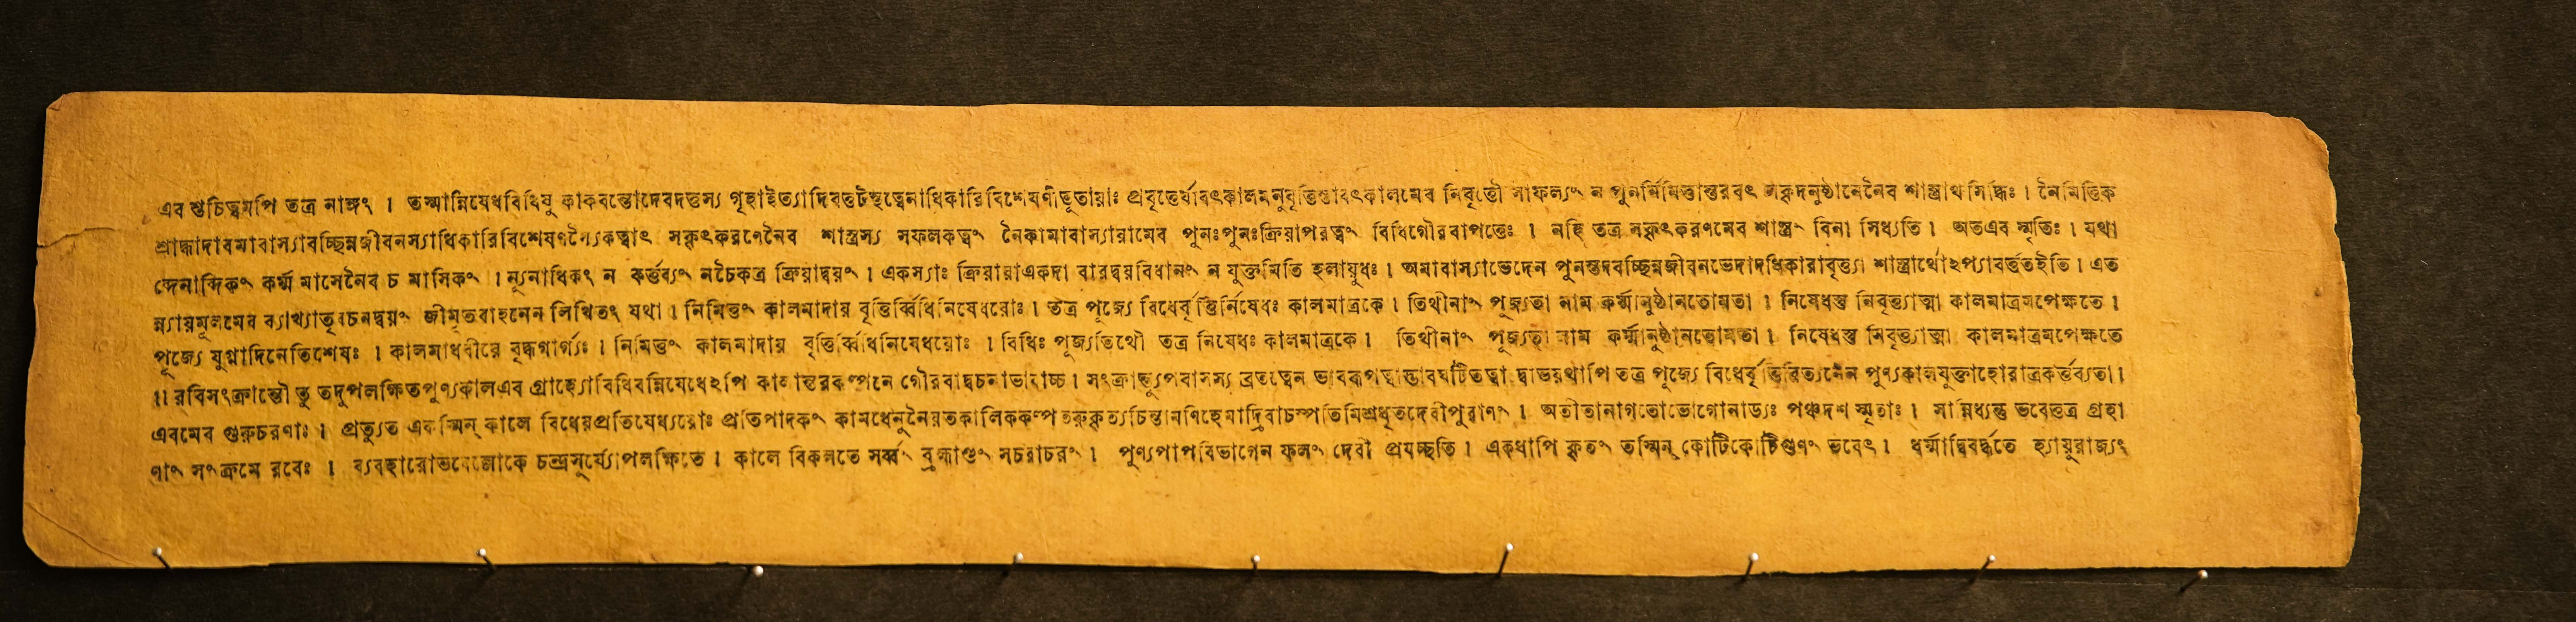 এব শুচিত্বমপি তত্র নাঙ্গং । তস্মান্নিষেধবিধিষু কাকবন্তোদেবদত্তস্য গৃহাইত্যাদিবত্তটস্থত্বেনাধিকারিবিশেষণীভূতায়াঃ প্রবৃত্তের্যাবৎকালমনুবৃত্তিস্তাবৎকালমেব নিবৃত্তৌ সাফল্যং ন পুনর্নিমিত্তান্তরবৎ সকৃদনুষ্ঠানেনৈব শাস্ত্রার্থসিদ্ধিঃ । নৈমিত্তিক
শ্রাদ্ধাদাবমাবাস্যাবচ্ছিন্নজীবনস্যাধিকারিবিশেষণস্যৈকত্বাৎ সকৃৎকরণেনৈব শাস্ত্রস্য সফলকত্বং নৈকামাবাস্যায়ামেব পুনঃপুনঃক্রিয়াপরত্বং বিধিগৌরবাপত্তেঃ । নহি তত্র সকৃৎকরণমেব শাস্ত্রং বিনা সিধ্যতি । অতএব স্মৃতিঃ । যথা
ব্দেনাব্দিকং কর্ম্ম মাসেনৈব চ মাসিকং । ন্যূনাধিকং ন কর্ত্তব্যং নচৈকত্র ক্রিয়াদ্বয়ং । একস্যাঃ ক্রিয়ায়াএকদা বারদ্বয়বিধানং ন যুক্তমিতি হলায়ুধঃ । অমাবাস্যাভেদেন পুনস্তদবচ্ছিন্নজীবনভেদাদধিকারাবৃত্ত্যা শাস্ত্রার্থোঽপ্যাবর্ত্ততইতি । এত
ন্ন্যায়মূলমেব ব্যাখ্যাতৃবচনদ্বয়ং জীমূতবাহনেন লিখিতং যথা । নিমিত্তং কালমাদায় বৃত্তির্ব্বিধিনিষেধয়োঃ । তত্র পূজ্যে বিধেবৃত্তির্নিষেধঃ কালমাত্রকে । তিথীনাং পূজ্যতা নাম কর্ম্মানুষ্ঠানতোমতা । নিষেধস্তু নিবৃত্ত্যাত্মা কালমাত্রমপেক্ষতে ।
পূজ্যে যুগ্মাদিনেতিশেষঃ । কালমাধবীয়ে বৃদ্ধগার্গ্যঃ । নিমিত্তং কালমাদায় বৃত্তির্ব্বিধিনিষেধয়োঃ । বিধিঃ পূজ্যতিথৌ তত্র নিষেধঃ কালমাত্রকে । তিথীনাং পূজ্যতা নাম কর্ম্মানুষ্ঠানতোমতা । নিষেধস্তু নিবৃত্ত্যাত্মা কালমাত্রমপেক্ষতে
।। রবিসংক্রান্তৌ তু তদুপলক্ষিতপুণ্যকালএব গ্রাহ্যোবিধিবন্নিষেধেঽপি কালান্তরকল্পনে গৌরবাদ্বচনাভাবাচ্চ । সংক্রান্ত্যুপবাসস্য ব্রতত্বেন ভাবরূপত্বাত্তাবঘটিতত্বাদ্বাভয়থাপি তত্র পূজ্যে বিধেবৃত্তিরিত্যনেন পুণ্যকালযুক্তাহোরাত্রকর্ত্তব্যতা ।
এবমেব গুরুচরণাঃ । প্রত্যুত একস্মিন্ কালে বিধেয়প্রতিষেধ্যয়োঃ প্রতিপাদকং কামধেনুনৈয়তকালিককল্পতরুকৃত্যচিন্তামণিহেমাদ্রিবাচস্পতিমিশ্রধৃতদেবীপুরাণং । অতীতানাগতোভোগোনাড্যঃ পঞ্চদশ স্মৃতাঃ । সান্নিধ্যন্তু ভবেত্তত্র গ্রহা
ণাং সংক্রমে রবেঃ । ব্যবহারোভবেল্লোকে চন্দ্রসূর্য্যোপলক্ষিতে । কালে বিকলতে সর্ব্বং ব্রহ্মাণ্ডং সচরাচরং । পুণ্যপাপবিভাগেন ফলং দেবী প্রযচ্ছতি । একধাপি কৃতং তস্মিন্ কোটিকোটিগুণং ভবেৎ । ধর্ম্মাদ্বিবর্দ্ধতে হ্যায়ুরাজ্যং